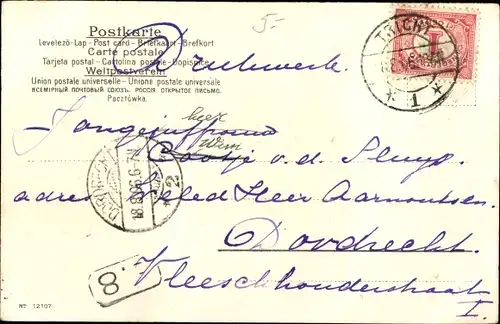 5.-
Postkarte
Levelező-Lap - Post card - Briefkaart - Brefkort
Carte postale
Tarjeta postal - Cartolina postale - Dopisnice
Weltpostverein
Union postale universelle - Unione postale universale
ВСЕМІРНЫЙ ПОЧТОВЫЙ СОЮЗЪ. РОССІЯ. ОТКРЫТОЕ ПИСЬМО.
Pocztówka.
Drukwerk.
TRICHT
1
heer
Jongejuffrouw
Wim
v. d. Pluym
DORDRECHT
18.8.06.6-7
2
adres Weled Heer Aarnoutsen
Dordrecht.
8.
Vleeschhouderstraat
I.
Nº 12107.